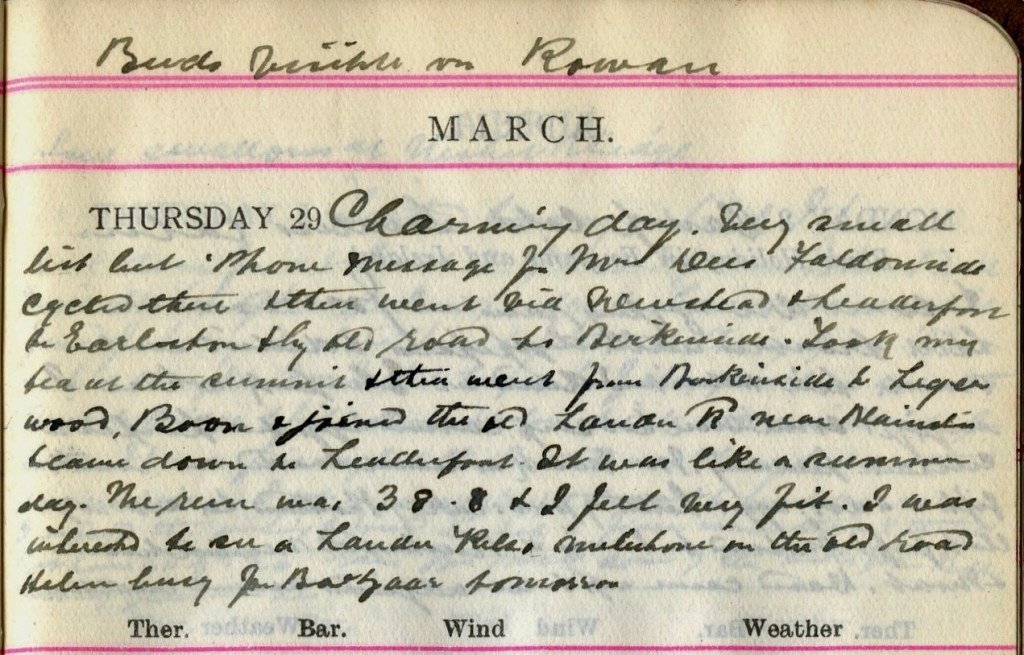 Buds visible on Rowan
MARCH.
THURSDAY 29 Charming day. Very small
list but 'Phone message fr Mrs Dees Faldonside
cycled there & then went via Newstead & Leaderfoot
to Earlston & by old road to Birkenside. Took my
tea at the summit & then went from Birkenside to Leger
wood, Boon & joined the old Lauder Rd near Blainslie
& came down to Leaderfoot. It was like a summer
day. The run was 38.8 & I felt very fit. I was
interested to see a Lauder Kelso milestone on the old road
Helen busy for Bazaar tomorrow
Ther. Bar. Wind Weather